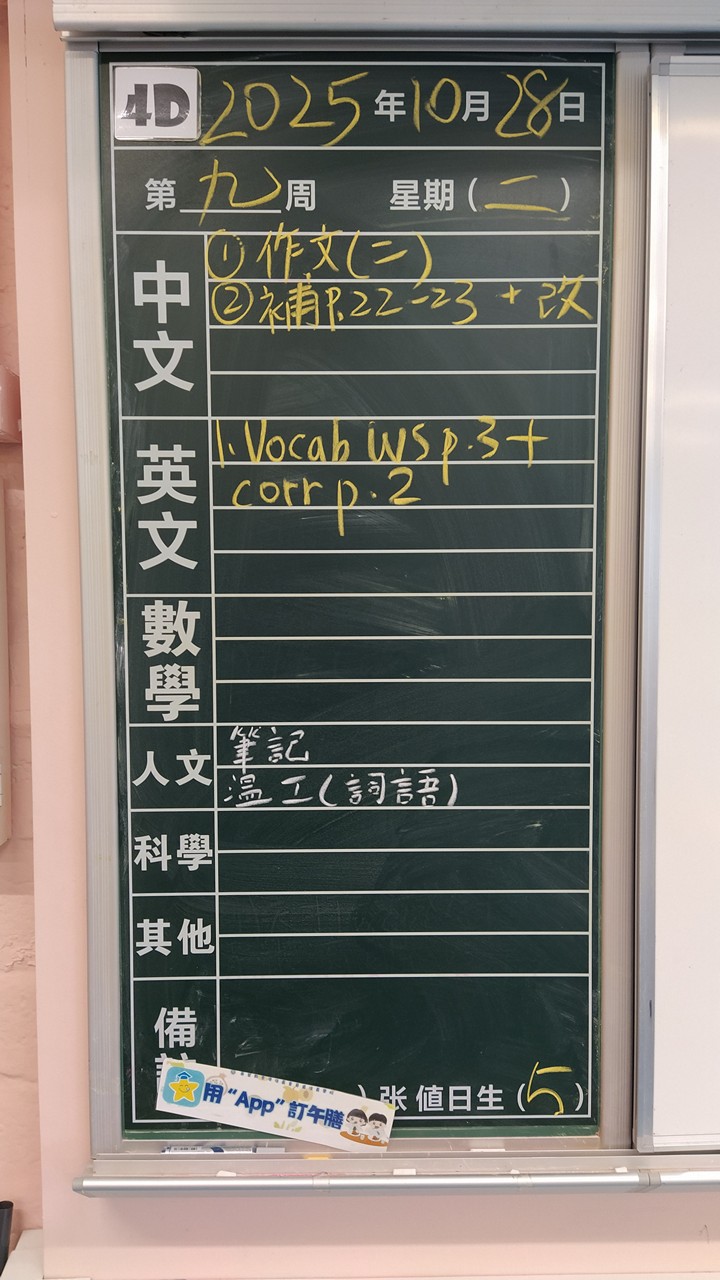 4D 2025年10月28日
第九周 星期(二)
中文
①作文(二)
②補P.22-23 + 改
英文
1. Vocab WS p.3 +
corr p.2
數學
人文
筆記
溫工(詞語)
科學
其他
備
)张 值日生(5)
用“App”訂午膳